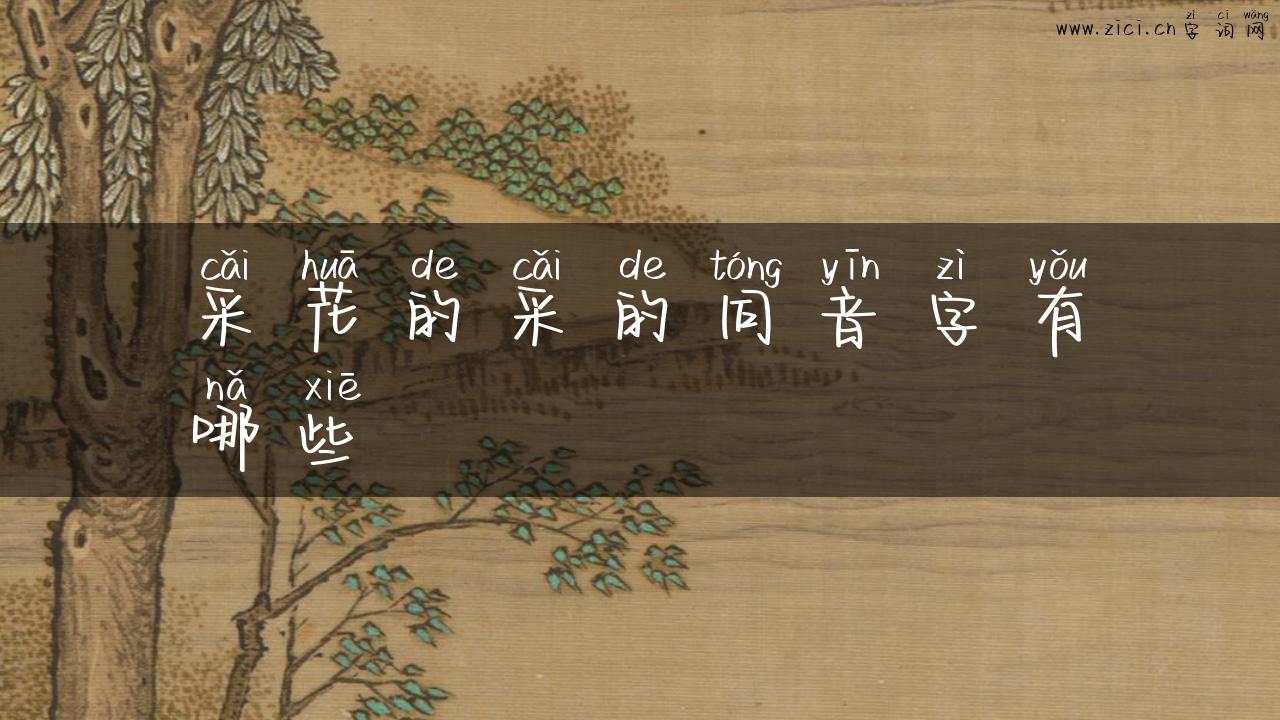 zì cí wǎng
www.zici.cn 字词网
cǎi huā de cǎi de tóng yīn zì yǒu
采花的采的同音字有
nǎ xiē
哪些